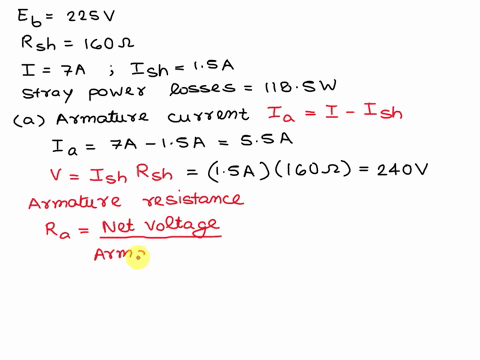 E_b = 225V
R_sh = 160Ω
I = 7A ; I_sh = 1.5A
Stray power losses = 118.5W
(a) Armature current I_a = I - I_sh
I_a = 7A - 1.5A = 5.5A
V = I_sh R_sh = (1.5A)(160Ω) = 240V
Armature resistance
R_a = Net Voltage
Arm